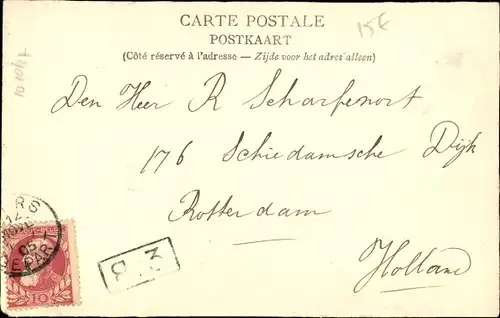 CARTE POSTALE
15€
POSTKAART
(Côté réservé à l'adresse — Zijde voor het adres alleen)
Den Heer R Scharfenort
176 Schiedamsche Dijk
Rotterdam
Holland
10
05
DÉPART